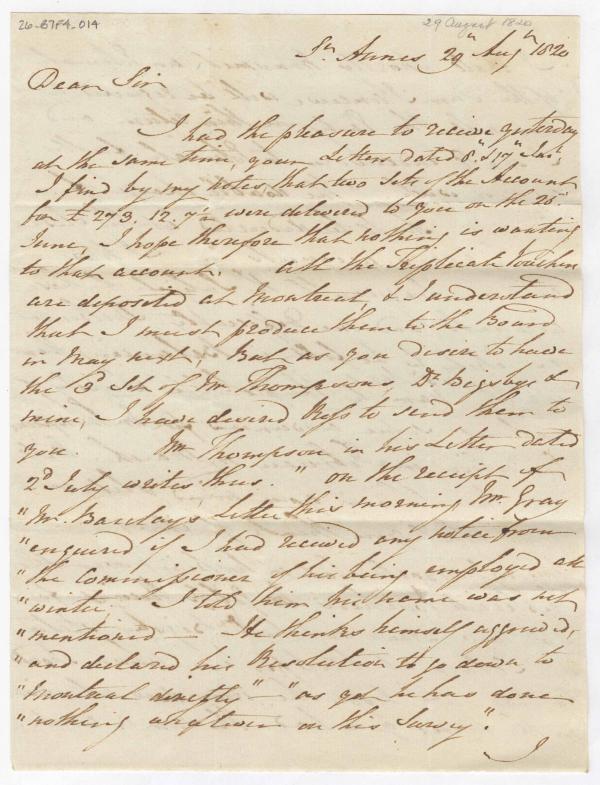 26-B7F4-014
29 August 1820
St Annes 29th Augt 1820
Dear Sir
I had the pleasure to receive yesterday
at the same time, your Letters dated 8th & 17th Inst.
I find by my notes, that two Sets of the Account
for £273.12.7½ were delivered to you on the 26th
June, I hope therefore that nothing is wanting
to that account. All the Triplicate Vouchers
are deposited at Montreal, & I understand
that I must produce them to the Board
in May next, But as you desire to have
the 3d Set of Mr Thompsons, Dr Bigsbys &
mine, I have desired Ross to send them to
you. Mr Thompson in his Letter dated
2d July writes thus. "on the receipt of
"Mr. Barclay's Letter this morning Mr. Gray
"enquired if I had received any notice from
"the Commissioner of his being employed all
"winter. I told them his name was not
"mentioned — He thinks himself aggrieved,
"and declared his Resolution to go down to
"Montreal directly" — "as yet he has done
"nothing whatever on this Survey".
I